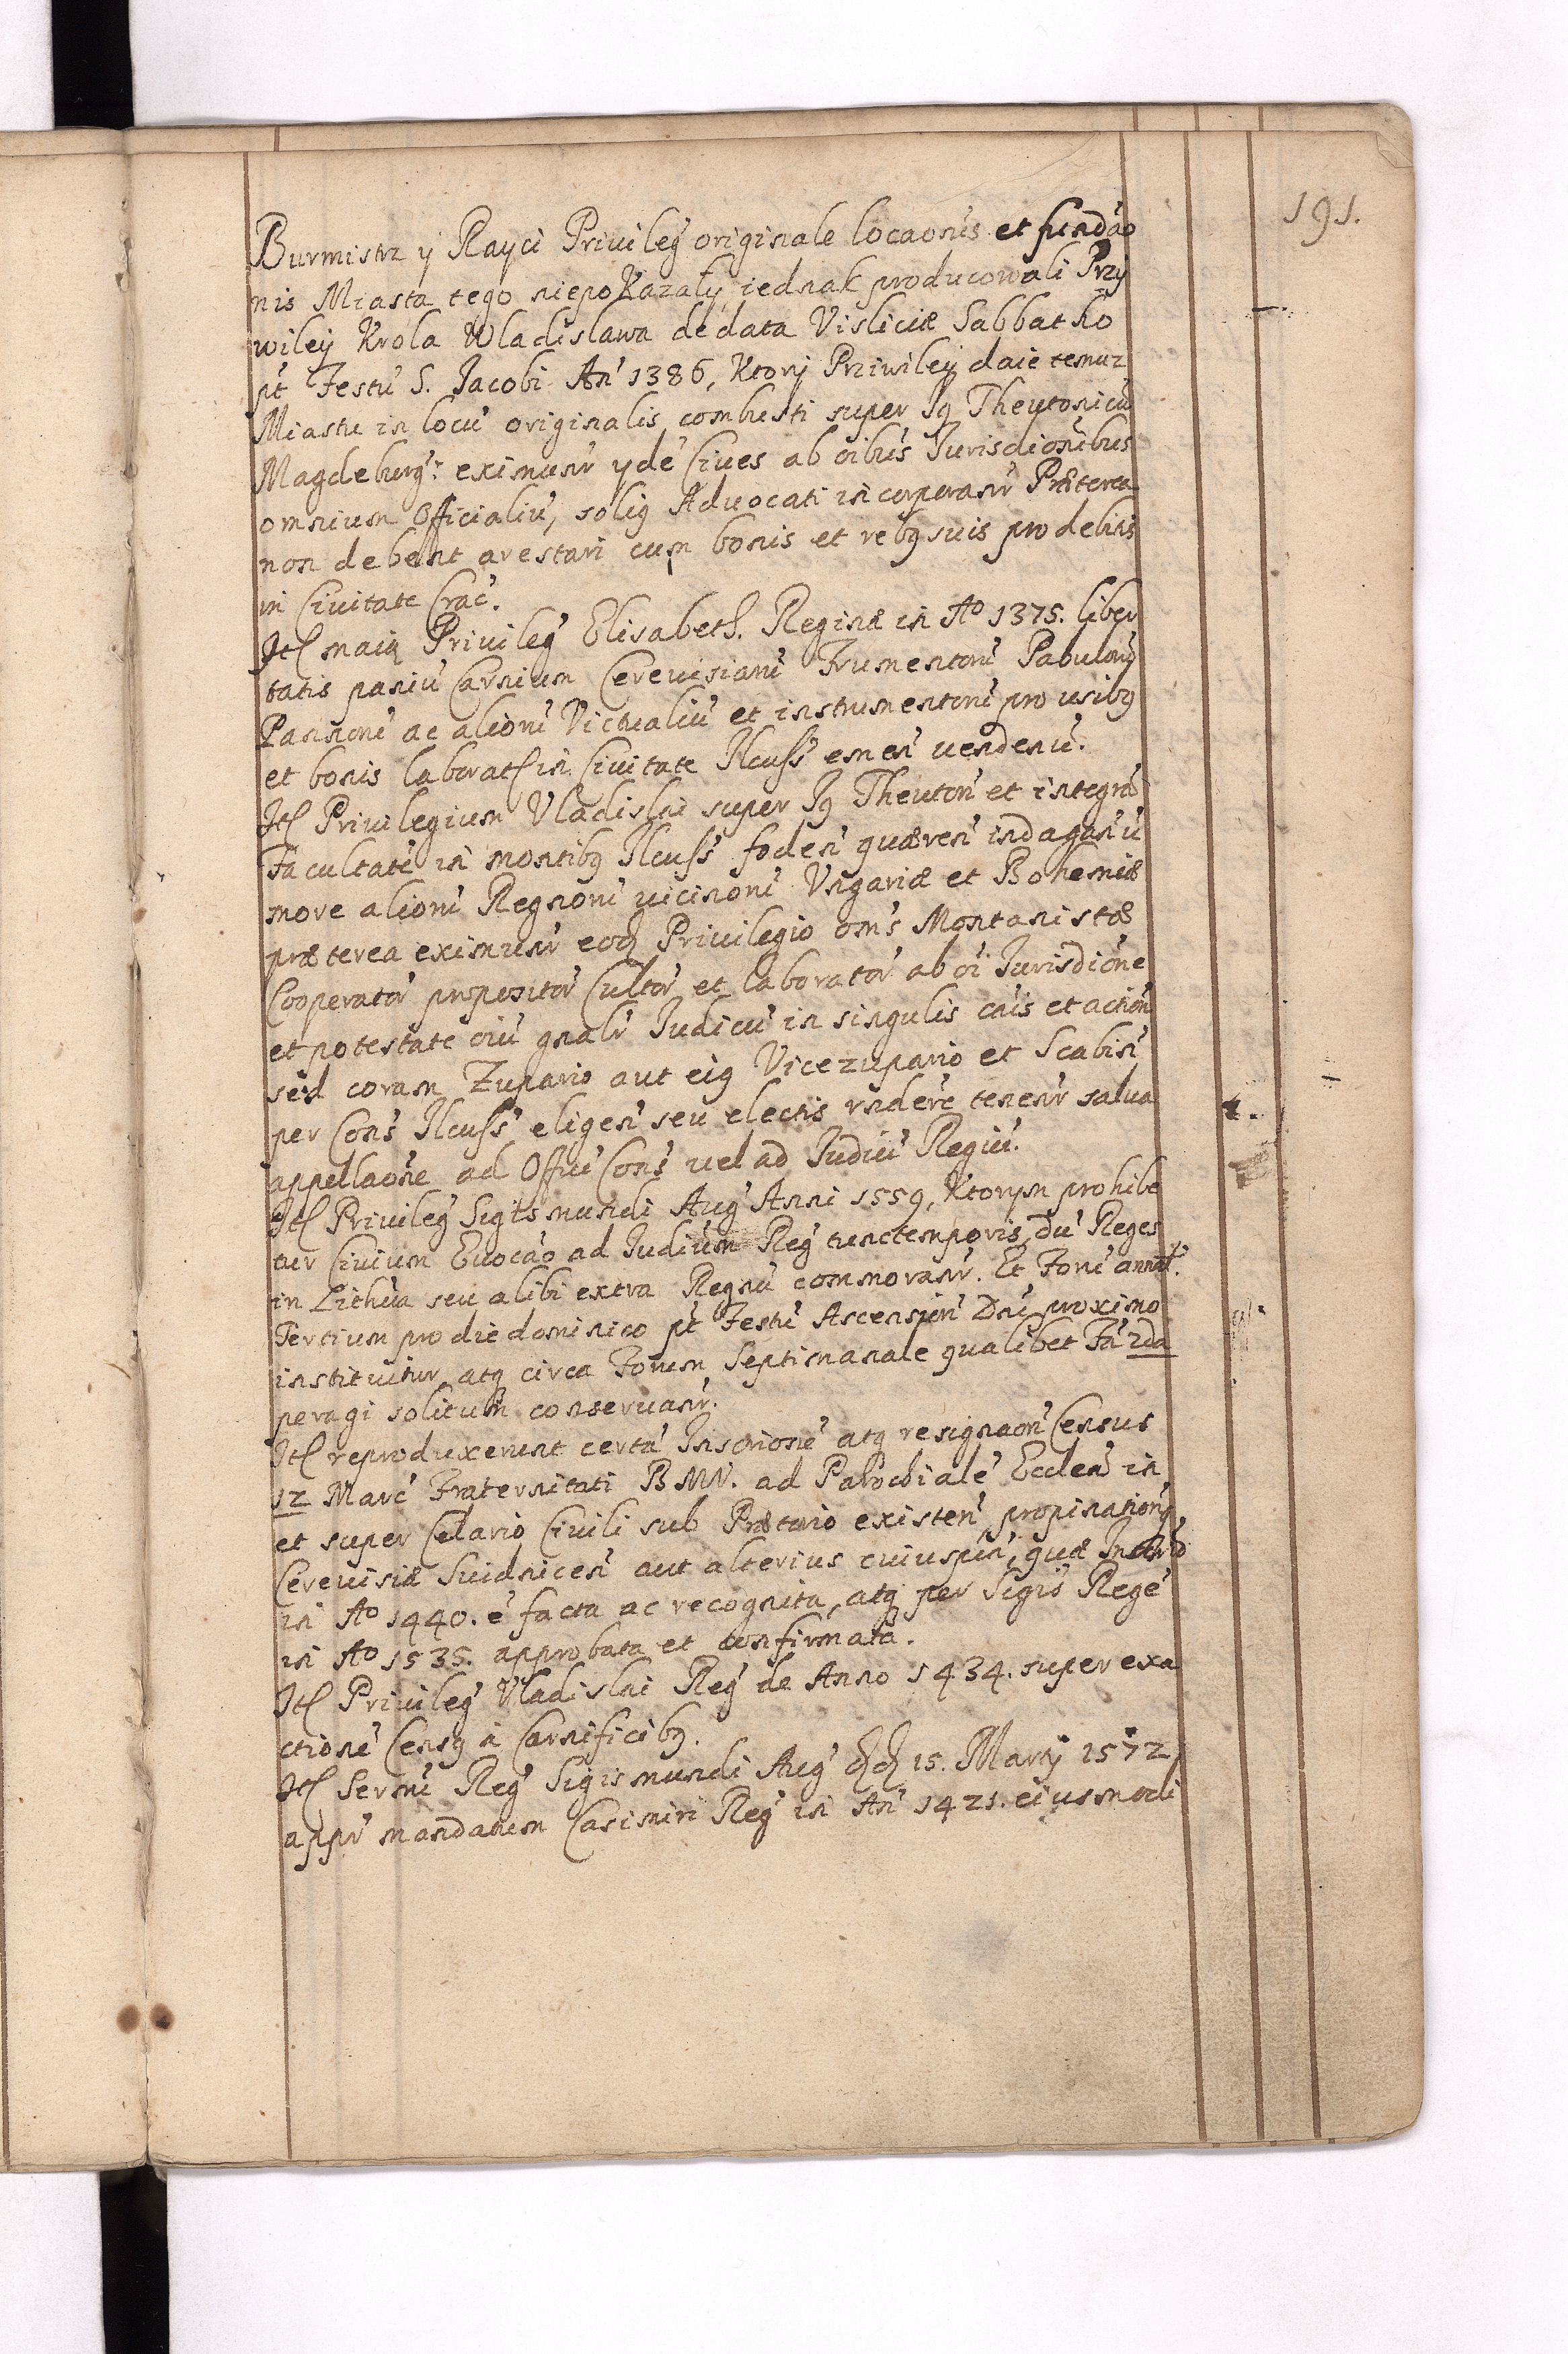 191.
Burmistz y Rayci Priuileÿ originale locaonis et fundao
nis Miasta tego niepokazały, iednak producowali Przy
wiley Krola Wladislawa de data Visliciæ Sabbatho
pt Festu S. Jacobi An 1386, Ktory Przwiley daie temuz
Miastu in locu originalis combusti super Iq Theutonicu
Magdeburg: eximunr yde Ciues ab oibus Jurisdionibus
omnium Officialiu, soliq Aduocati incorporanr Præterea
non debent arestari cum bonis et rebq suis pro debitis
in Ciuitate Crac.
Itl maiq Priuileg Elisabeth. Reginæ in Ao 1375. liber
tatis paniu Carnium Cereuisiaru Frumentoru Pabulorq
Pannoru ac alioru Victualiu et instrumentoru pro usibq
et bonis laborat in Ciuitate Ilcuss emen uendenu.
Itl Priuilegium Vladislai super Iq Theuton et integra
Facultate in montibq Ilcuss foden quæren indaganu
more alioru Regnoru uicinoru Vngariæ et Bohemiæ
præterea eximunr eod Priuilegio oms Montanistæ
Cooperator propositor Cultor et laborator ab oi Jurisdione
et potestate oiu gnalr Judicu in singulis cais et action
sed coram Zupario aut eiq Vicezupario et Scabin
per Cons Ilcuss eligen seu electis rndere tenenr salua
appellaone ad Offiu Cons uel ad Judiu Regiu.
Itl Priuileg Sigismundi Aug Anni 1559, Ktorym prohibe
tur Ciuium Euocao ad Judium Reg tunctemporis, du Reges
in Lithua seu alibi extra Regnu commoranr. Et Foru annal.
Tertium pro die dominico pt Festu Ascension Dni proximo
instituitur atq circa Forum Septimanale qualibet Fa 2da
peragi solitum conseruanr.
Itl reproduxerunt certa Inscrione atq resignaon Census
12 Marc Fraternitati B MV. ad Parochiale Ecclen in
et super Celario Ciuili sub Prætorio existen propinationq
Cereuisiæ Suidnicen aut alterius cuiuspin, quæ Inscrio
in Ao 1440. e facta ac recognita, atq per Sigis Rege
in Ao 1535. approbata et confirmata.
Itl Priuileg Vladislai Reg de Anno 1434. super exa
ctione Censq à Carnificibq.
Itl Sermi Reg Sigismundi Aug dd 15. Martij 1572
appr mandatum Casimiri Reg in An 1421. eiusmodi